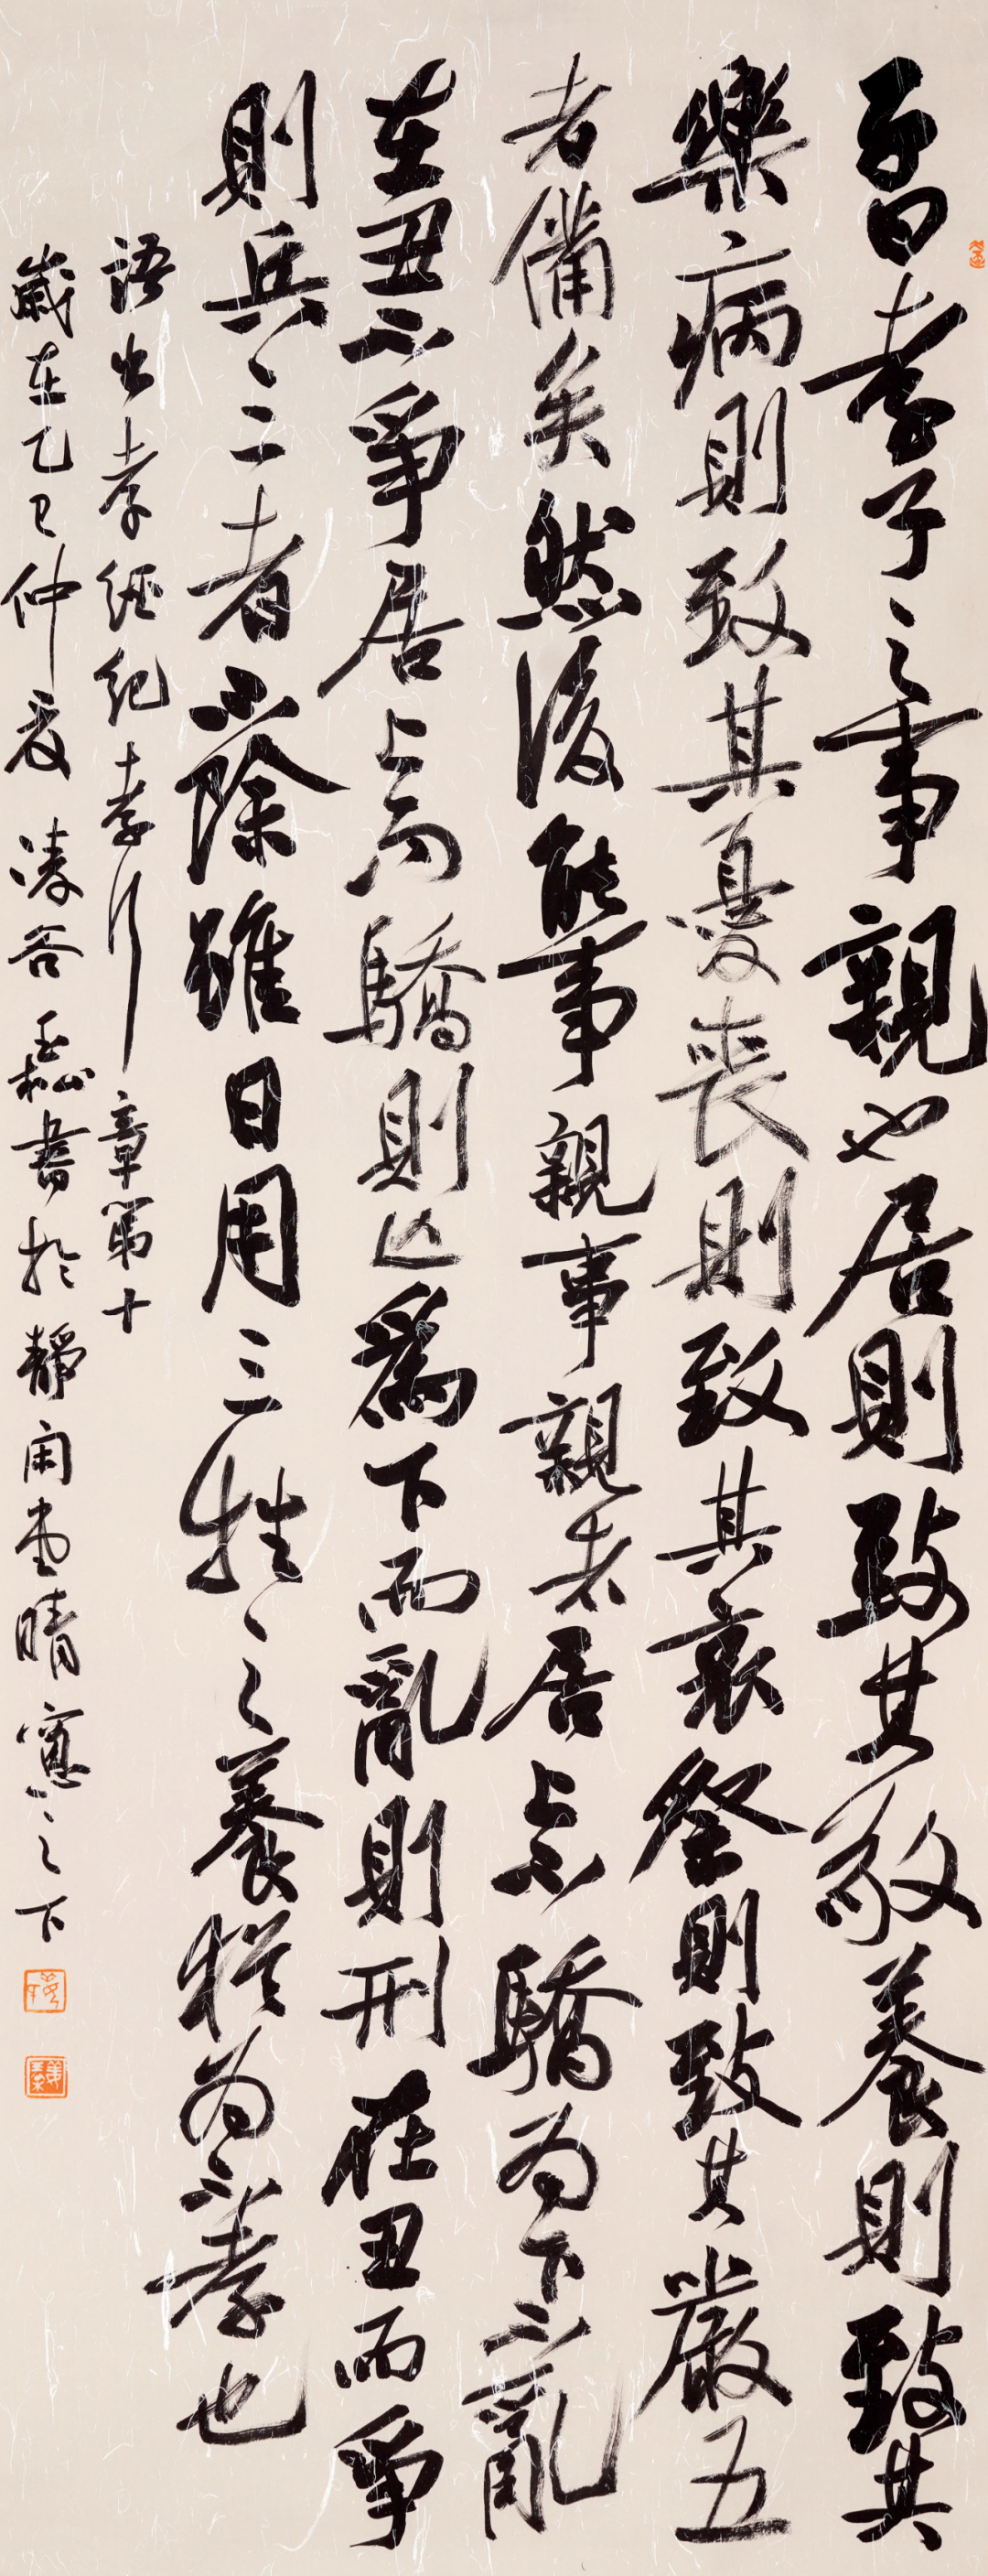 子曰孝子之事親也居則致其敬養則致其
樂病則致其憂喪則致其哀祭則致其嚴五
者備矣然後能事親事親者居上不驕為下不亂
在丑不爭居上而驕則亡為下而亂則刑在丑而爭
則兵三者不除雖日用三牲之養猶為不孝也
語出孝經紀孝行章第十
歲在乙巳仲夏 書於靜閑堂晴窗之下